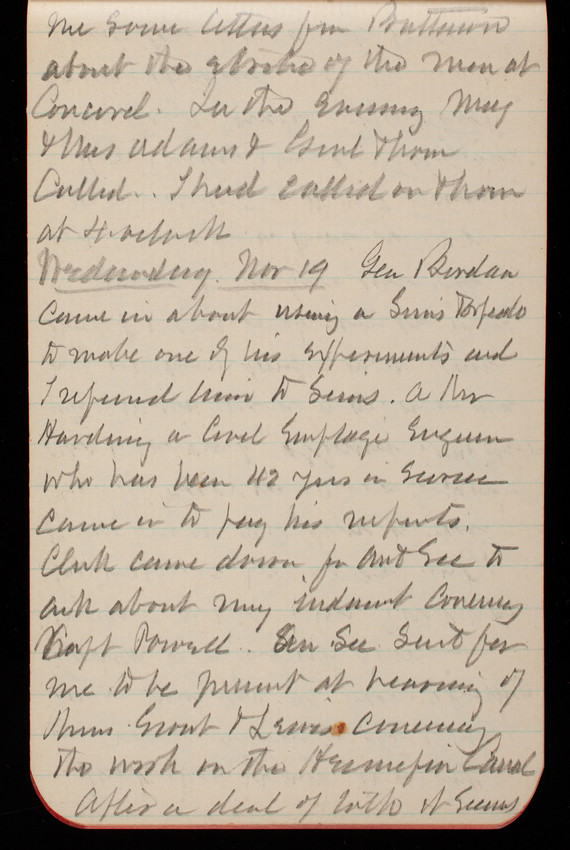 me some letters from
about the strike of the men at
Concord. In the Evening Maj
& Mrs Adams & Genl Thom
Called. I had called on Thom
at 4 oclock
Wednesday Nov 19 Gen Berdan
came in about using a Sims Torpedo
to make one of his experiments and
I referred him to Sims. A Mr
Harding a Civil Employe Engineer
who has been 42 yrs in Service
came in to pay his respects.
Clerk came down for Ast Sec to
ask about my indorsmt concerning
Capt Powell. Sec sent for
me to be present at hearing of
Grant & Lewis concerning
the work on the Hennepin Canal
After a deal of talk it seems